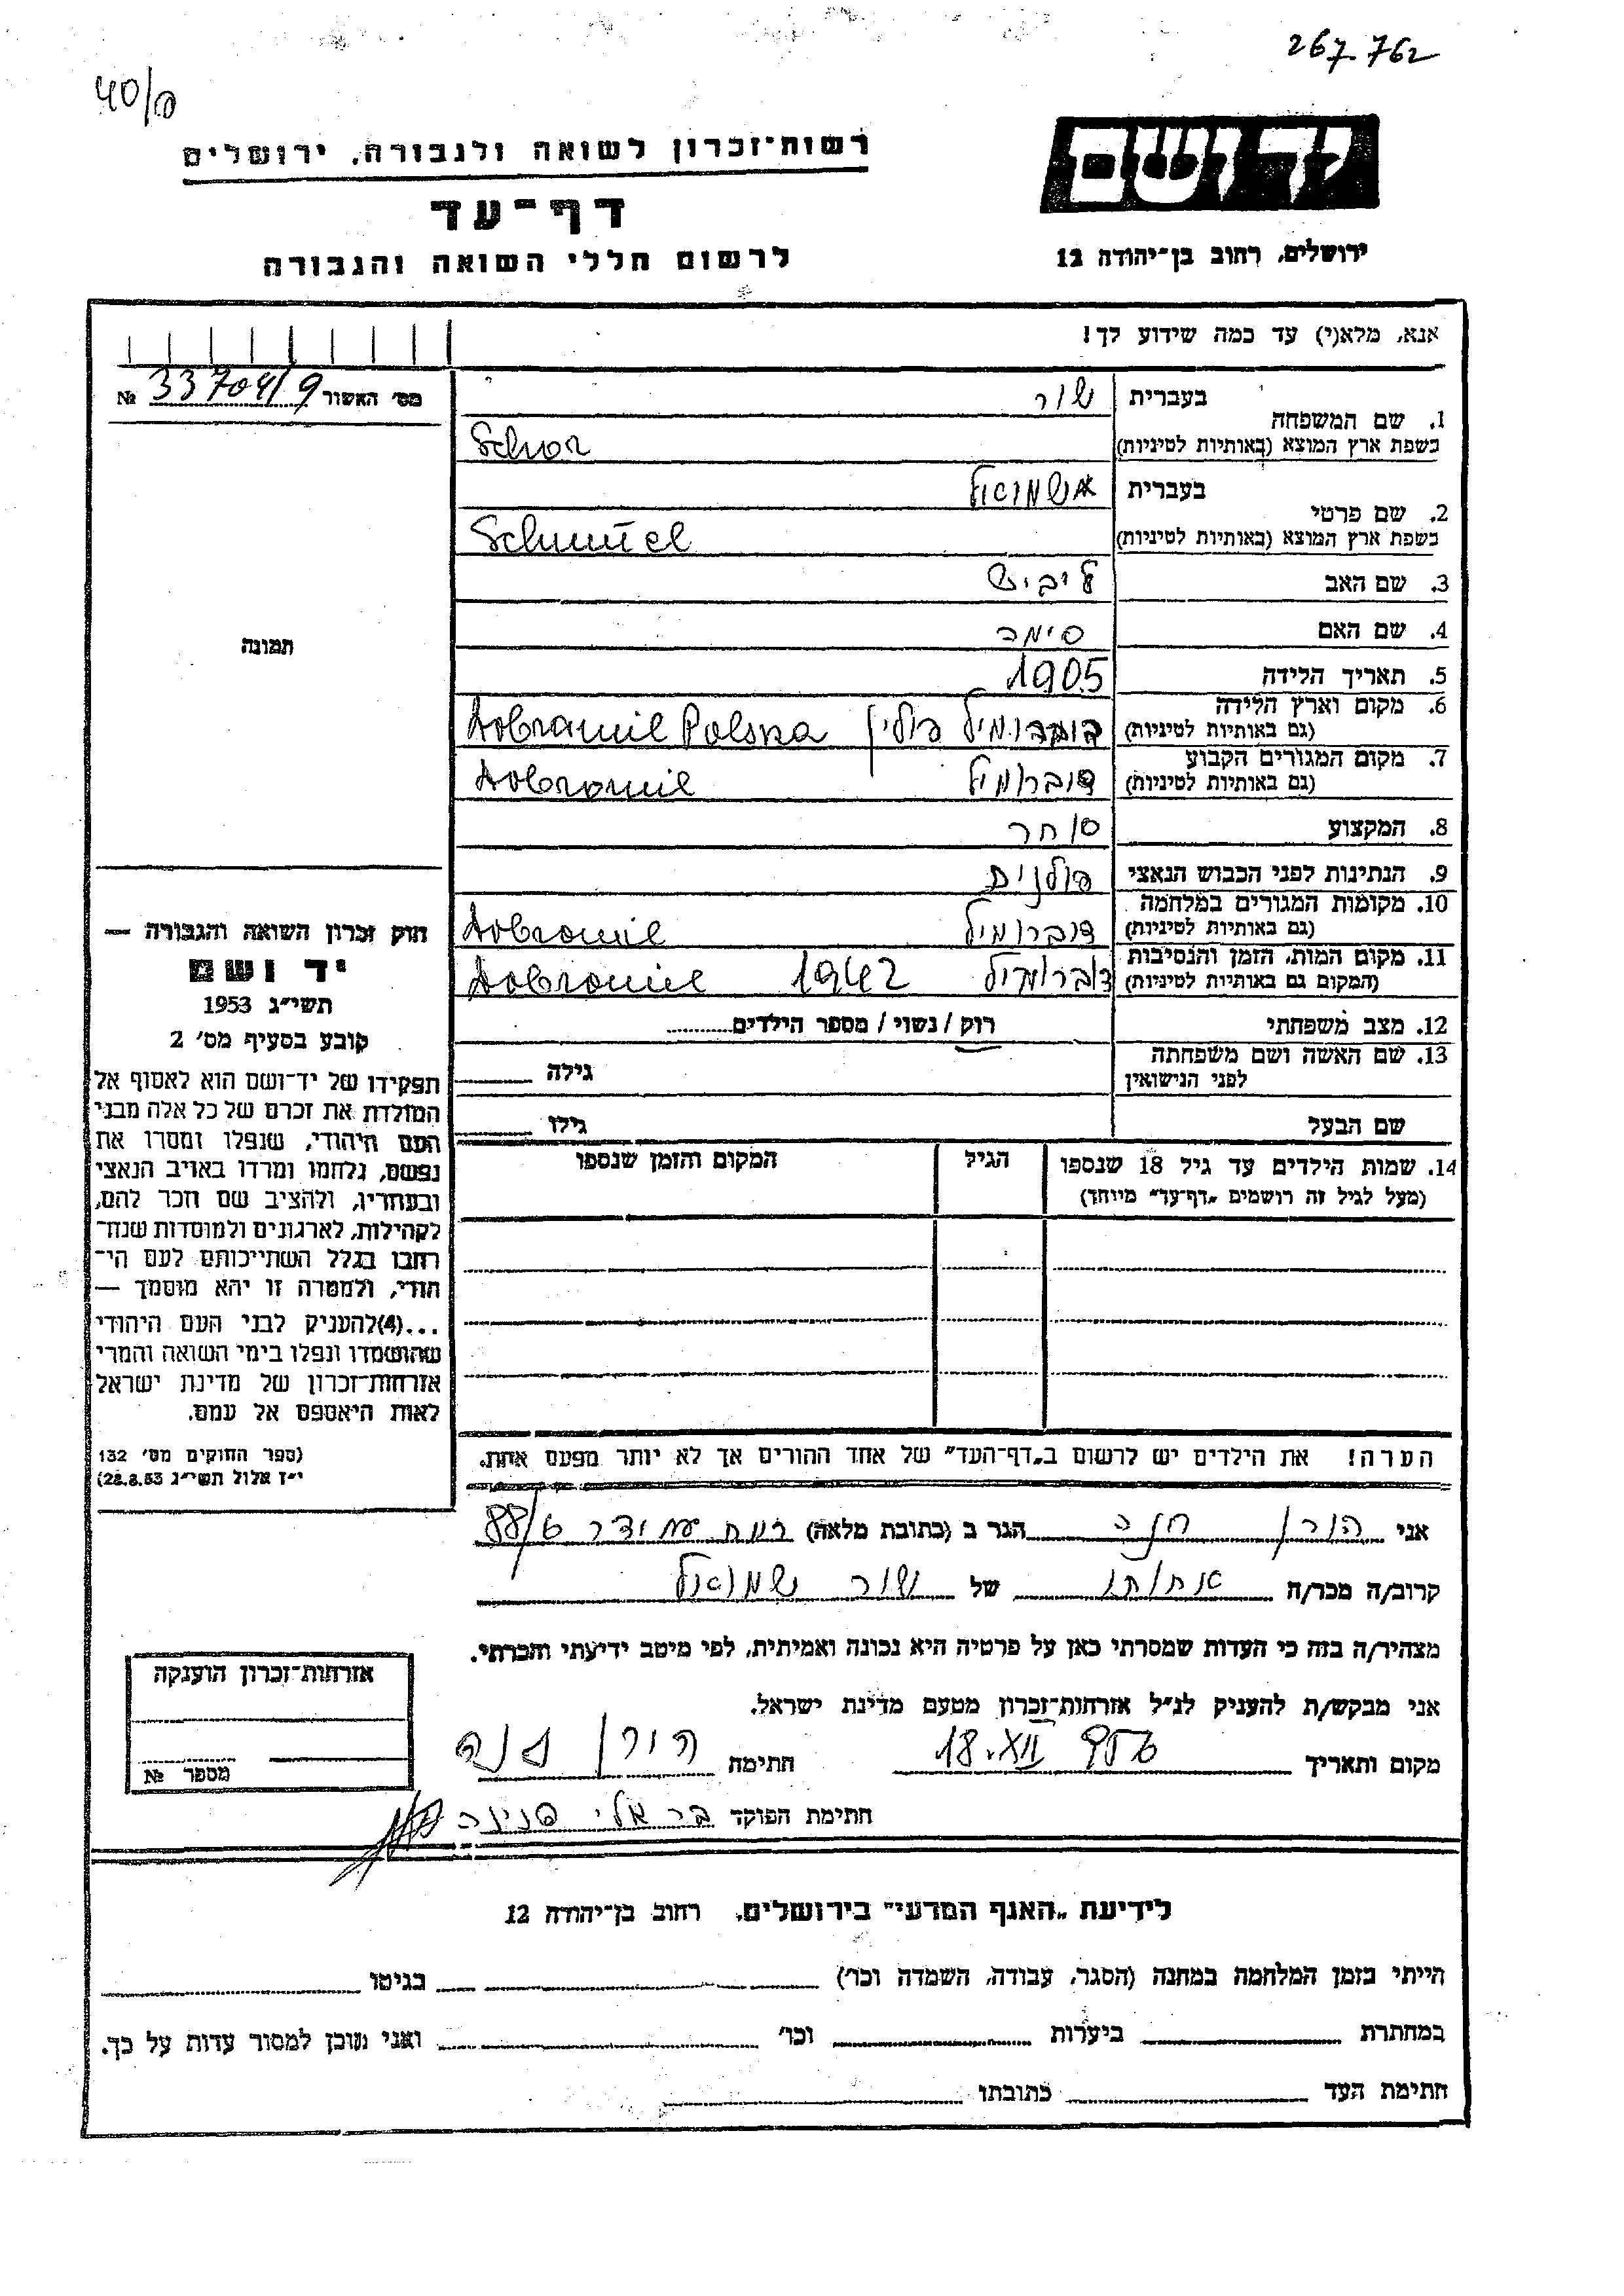 267.762
40/
רשות־זכרון לשואה ולגבורה, ירושלים
יד ושם
דף־עד
לרשום חללי השואה והגבורה
ירושלים, רחוב בן־יהודה 12
אנא, מלא(י) עד כמה שידוע לך!
מס׳ האשור № 33704/9
1. שם המשפחה בעברית שור
בשפת ארץ המוצא (באותיות לטיניות) Schor
2. שם פרטי בעברית שמואל
בשפת ארץ המוצא (באותיות לטיניות) Schmuel
3. שם האב ליביש
4. שם האם סימה
5. תאריך הלידה 1905
6. מקום וארץ הלידה (גם באותיות לטיניות) דוברומיל פולין Dobramil Polska
7. מקום המגורים הקבוע (גם באותיות לטיניות) דוברומיל Dobromil
8. המקצוע סוחר
9. הנתינות לפני הכבוש הנאצי פולנית
10. מקומות המגורים במלחמה (גם באותיות לטיניות) דוברומיל Dobromil
11. מקום המות, הזמן והנסיבות (המקום גם באותיות לטיניות) דוברומיל 1942 Dobromil
12. מצב משפחתי רוק / נשוי / מספר הילדים
13. שם האשה ושם משפחתה לפני הנישואין גילה
שם הבעל גילו
14. שמות הילדים עד גיל 18 שנספו הגיל המקום והזמן שנספו
(מעל לגיל זה רושמים „דף־עד״ מיוחד)
תמונה
חוק זכרון השואה והגבורה —
יד ושם
תשי״ג 1953
קובע בסעיף מס׳ 2
תפקידו של יד־ושם הוא לאסוף אל
המולדת את זכרם של כל אלה מבני
העם היהודי, שנפלו ומסרו את
נפשם, נלחמו ומרדו באויב הנאצי
ובעוזריו, ולהציב שם וזכר להם,
לקהילות, לארגונים ולמוסדות שנח־
רחבו בגלל השתייכותם לעם הי־
הודי, ולמטרה זו יהא מוסמך —
...(4)להעניק לבני העם היהודי
שהושמדו ונפלו בימי השואה והמרי
אזרחות־זכרון של מדינת ישראל
לאות היאספם אל עמם.
(ספר החוקים מס׳ 132
י״ז אלול תשי״ג 28.8.53)
הערה! את הילדים יש לרשום ב„דף־העד״ של אחד ההורים אך לא יותר מפעם אחת.
אני הורן חנה הגר ב (כתובת מלאה) רמת עמידר 88/6
קרוב/ה מכר/ה אחותו של שור שמואל
מצהיר/ה בזה כי העדות שמסרתי כאן על פרטיה היא נכונה ואמיתית, לפי מיטב ידיעתי והכרתי.
אני מבקש/ת להעניק לנ״ל אזרחות־זכרון מטעם מדינת ישראל.
מקום ותאריך 18.XII חתימה הורן חנה
חתימת הפוקד בר אלי פנינה
אזרחות־זכרון הוענקה
מספר №
לידיעת „האגף המדעי״ בירושלים, רחוב בן־יהודה 12
הייתי בזמן המלחמה במחנה (הסגר, עבודה, השמדה וכו׳) בגיטו
במחתרת ביערות וכו׳ ואני מוכן למסור עדות על כך.
חתימת העד כתובתו